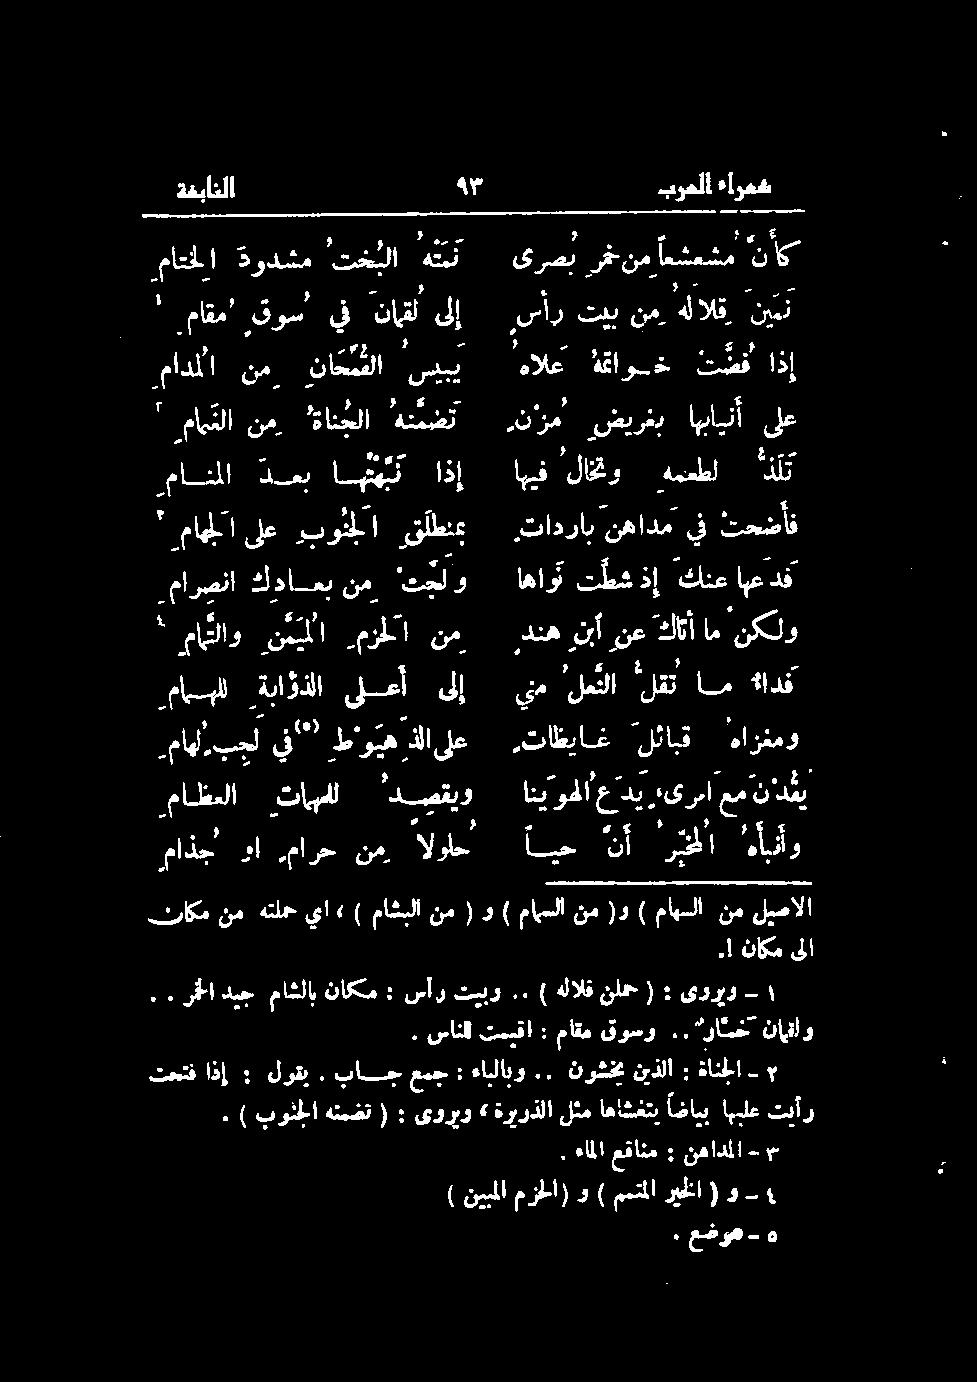 شعراء العرب ٩٣ النابغة
كأنَّ مُشعشعاً من خمرِ بُصرى نَمَتْهُ البُختُ مشدودَ الخِتامِ
نَمَينَ قِلالَهُ مِن بيت رأسٍ إلى لُقمانَ في سُوقٍ مُقامِ ١
إذا فُضَّتْ خواتمُهُ عَلاهُ يَبيسُ القُمَّحانِ من المُدامِ
على أنيابها بغريضِ مُزنٍ تَضمَّنهُ الجُناةُ مِن الغَمامِ ٢
تَلَذُّ لطعمهِ وتخالُ فيها إذا نَبَّهتَها بعدَ المنامِ
فأضحتْ في مَداهنَ بارداتٍ بمنطَلَقِ الجَنوبِ على الجَهامِ ٣
فدَعها عنكَ إذ شطَّت نَواها ولَجَّتْ مِن بعادِكَ انصرامِ
ولكنْ ما أتاكَ عنِ أبنِ هندٍ مِن الحَزمِ المُيَمَّنِ والتَّمامِ ٤
فداءٌ ما تُقلُّ النَّعلُ مني إلى أعلى الذُؤابةِ للهمامِ
ومغزاهُ قبائلَ غايظاتٍ على الذِهيَوْطِ (٥) في لَجِبٍ لُهامِ
يَقُدْنَ مع امرىءٍ يَدَعُ الهُوَينا ويقصِدُ للمهماتِ العظامِ
وأنبأهُ المُخبِّرُ أنَّ حياً حُلولاً مِن حرامٍ او جُذامِ
الاصيل من السهام ) و( من السمام ) و ( من البشام ) ، اي حملته من مكان
الى مكان !.
١ - ويروى : ( حملن قلاله ) .. وبيت رأس : مكان بالشام جيد الخمر . .
ولقمان خمَّار .. وسوق مقام : اقيمت للناس .
٢ - الجناة : الذين يخشون .. وبالباء : جمع جاب . يقول : إذا فتحت
رأيت عليها بياضاً يتغشاها مثل الذريرة ، ويروى : ( تضمنه الجنوب ) .
٣ - المداهن : مناقع الماء .
٤ - و ( الخير المتمم ) و (الحزم المبين )
٥ - موضع .